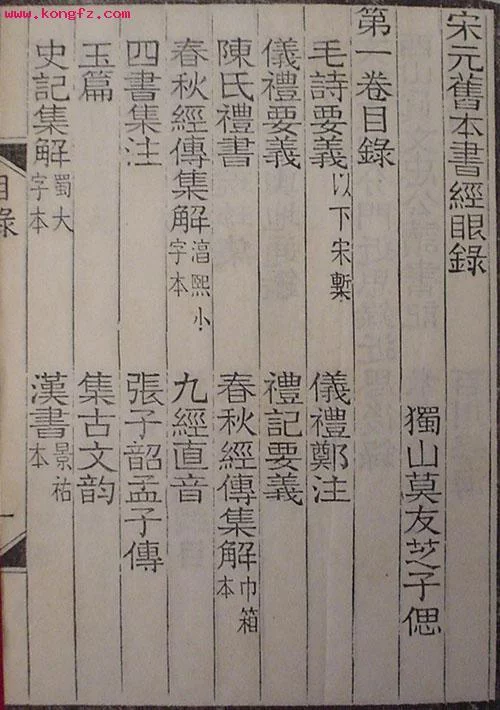 www.kongfz.com
宋元舊本書經眼錄
獨山莫友芝子偲
第一卷目錄
毛詩要義 以下宋槧 儀禮鄭注
儀禮要義 禮記要義
陳氏禮書 春秋經傳集解 巾箱本
春秋經傳集解 淳熙小字本 九經直音
四書集注 張子韶孟子傳
玉篇 集古文韵
史記集解 蜀大字本 漢書 景祐本
目錄
一